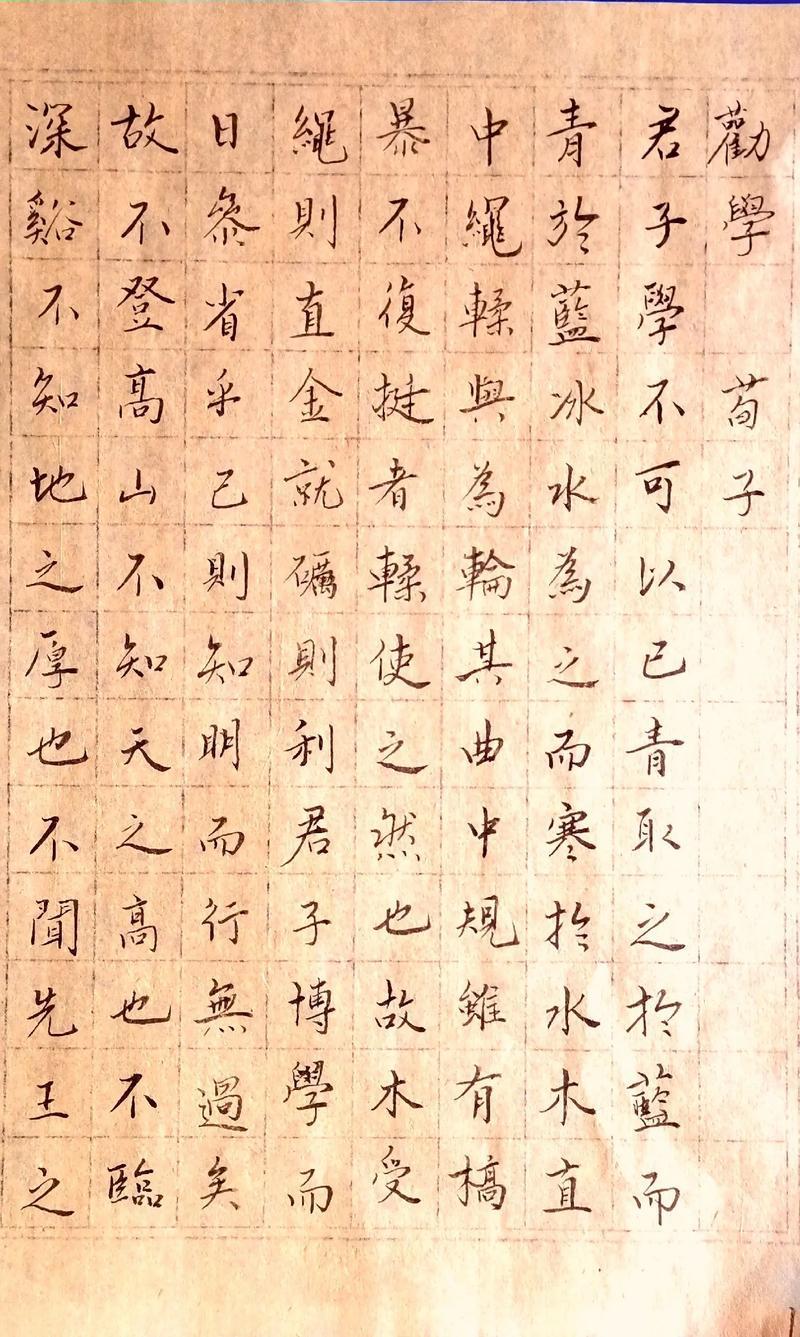 勸學 荀子
君子學不可以已青取之於藍而
青於藍冰水為之而寒於水木直
中繩輮與為輪其曲中規雖有槁
暴不復挺者輮使之然也故木受
繩則直金就礪則利君子博學而
日參省乎己則知明而行無過矣
故不登高山不知天之高也不臨
深谿不知地之厚也不聞先王之